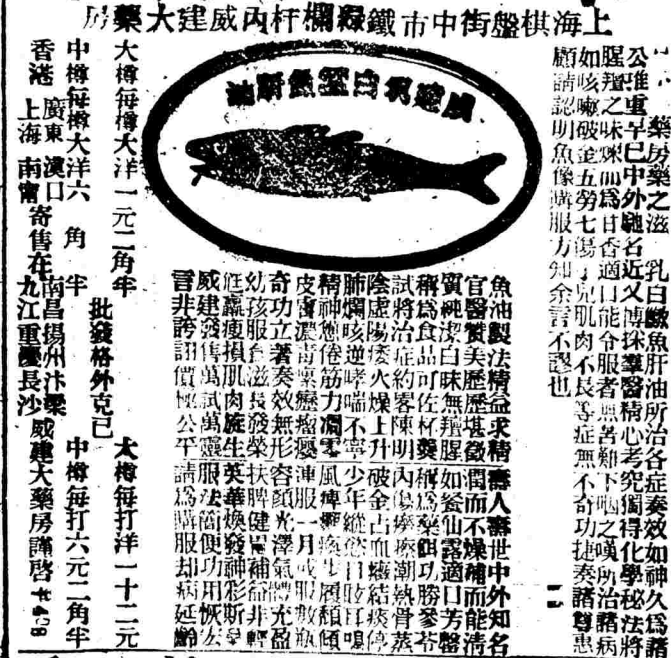 上海棋盤街中市鐵綠欄杆內威建大藥房
藥房藥之滋 乳白鰵魚肝油所治各症奏效如神久爲諸
公推重早已中外馳名近又博採羣醫精心考究獨得化學秘法將
腥羶之味煉而爲甘香適口能令服者無苦難下咽之嘆所治諸病
如咳嗽破金五勞七傷小兒肌肉不長等症無不奇功捷奏諸尊惠
顧請認明魚像購服方知余言不謬也
威建乳白鰵魚肝油
魚油製法精益求精壽人壽世中外知名
官醫贊美歷歷堪徵潤而不燥補而能清
質純潔白味無羶腥如餐仙露適口芳馨
稱爲食品可佐杯羹稱爲藥餌功勝參苓
試將治症約畧陳明內傷瘵潮熱骨蒸
陰虛陽痿火燥上升破金占血癥結痰停
肺爛咳逆哮喘不寧少年縱慾目眩耳鳴
精神憊倦筋力凋零風痺瘓步履頹傾
皮膚濃毒瘰癧瘤癭連服一月或服數瓶
奇功立著奏效無形容顏光澤氣體充盈
幼孩服食滋長發榮扶脾健胃補益非輕
尫羸瘦損肌肉旋生英華煥發神彩斯呈
威建發售萬試萬靈服法簡便功用恢宏
言非誇詡價極公平請爲購服却病延齡
大樽每樽大洋一元二角半
中樽每樽大洋六角半
批發格外克己
大樽每打洋一十二元
中樽每打六元二角半
香港 廣東 漢口 南昌 揚州 汴梁
上海 南甯 寄售在 九江 重慶 長沙
威建大藥房謹啓